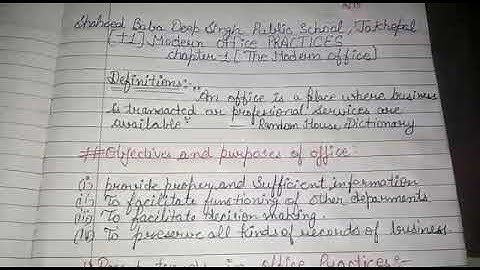 Shaheed Baba Deep Singh Public School, Jakhepal
[+1] Modern office PRACTICES
chapter 1 [The Modern office]
Definitions:- "An office is a place where business
is transacted or profesional services are
available" - Random House Dictionary
## Objectives and purposes of office:
(i) provide proper and sufficient information
(ii) To facilitate functioning of other deparments.
(iii) To facilitate decision making.
(iv) To preserve all kinds of records of business
in office Practices:-